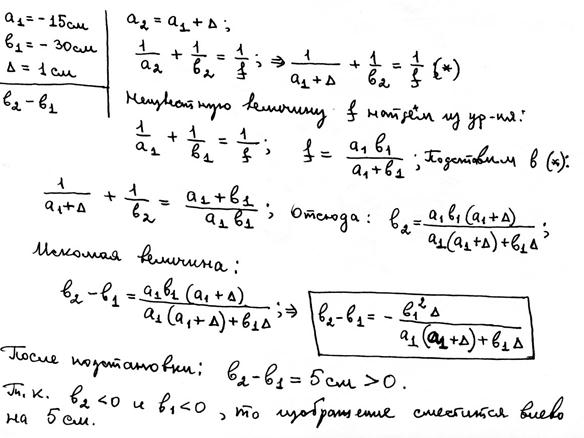 a₁ = - 15 см
b₁ = - 30 см
Δ = 1 см
b₂ - b₁
a₂ = a₁ + Δ;
1/a₂ + 1/b₂ = 1/f; ⇒ 1/(a₁+Δ) + 1/b₂ = 1/f (*)
Неизвестную величину f найдём из ур-ния:
1/a₁ + 1/b₁ = 1/f; f = a₁b₁/(a₁+b₁); Подставим в (*):
1/(a₁+Δ) + 1/b₂ = (a₁+b₁)/(a₁b₁); Отсюда: b₂ = a₁b₁(a₁+Δ)/(a₁(a₁+Δ)+b₁Δ);
Искомая величина:
b₂ - b₁ = a₁b₁(a₁+Δ)/(a₁(a₁+Δ)+b₁Δ); ⇒ b₂ - b₁ = - b₁²Δ/(a₁(a₁+Δ)+b₁Δ)
После подстановки: b₂ - b₁ = 5 см > 0.
Т.к. b₂ < 0 и b₁ < 0, то изображение сместится влево
на 5 см.